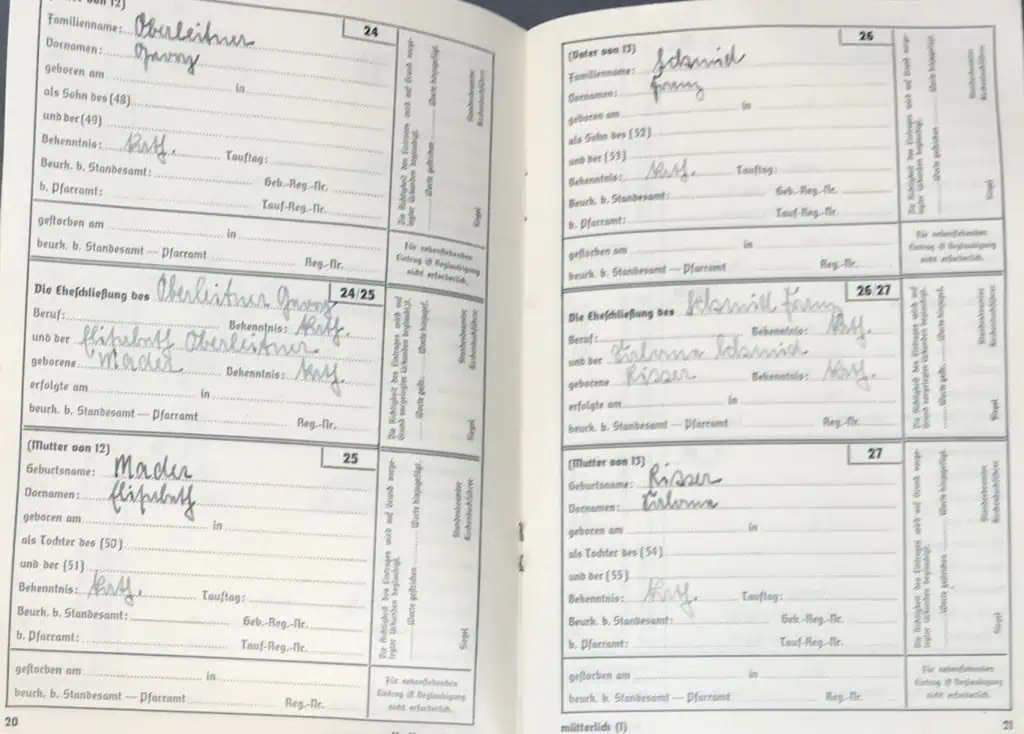 24
Familienname: Oberleitner
Vornamen: Georg
geboren am in
als Sohn des (48)
und der (49)
Bekenntnis: kath. Tauftag:
Beurk. b. Standesamt: Geb.-Reg.-Nr.
b. Pfarramt: Tauf-Reg.-Nr.
gestorben am in
beurk. b. Standesamt — Pfarramt Reg.-Nr.
Die Richtigkeit des Eintrages wird auf Grund vorge-
legter Urkunden beglaubigt.
Worte gestrichen Worte hinzugefügt.
Standesbeamter
Kirchenbuchführer
Siegel
Für nebenstehenden
Eintrag ist Beglaubigung
nicht erforderlich.
24/25
Die Eheschließung des Oberleitner Georg
Beruf: Bekenntnis: kath.
und der Elisabeth Oberleitner
geborene Mader Bekenntnis: kath.
erfolgte am in
beurk. b. Standesamt — Pfarramt Reg.-Nr.
Die Richtigkeit des Eintrages wird auf
Grund vorgelegter Urkunden beglaubigt.
Worte gestr. Worte hinzugef.
Standesbeamter
Kirchenbuchführer
Siegel
(Mutter von 12) 25
Geburtsname: Mader
Vornamen: Elisabeth
geboren am in
als Tochter des (50)
und der (51)
Bekenntnis: kath. Tauftag:
Beurk. b. Standesamt: Geb.-Reg.-Nr.
b. Pfarramt: Tauf-Reg.-Nr.
gestorben am in
beurk. b. Standesamt — Pfarramt Reg.-Nr.
Die Richtigkeit des Eintrages wird auf Grund vorge-
legter Urkunden beglaubigt.
Worte gestrichen Worte hinzugefügt.
Standesbeamter
Kirchenbuchführer
Siegel
Für nebenstehenden
Eintrag ist Beglaubigung
nicht erforderlich.
20
(Vater von 13) 26
Familienname: Schmid
Vornamen: Franz
geboren am in
als Sohn des (52)
und der (53)
Bekenntnis: kath. Tauftag:
Beurk. b. Standesamt: Geb.-Reg.-Nr.
b. Pfarramt: Tauf-Reg.-Nr.
gestorben am in
beurk. b. Standesamt — Pfarramt Reg.-Nr.
Die Richtigkeit des Eintrages wird auf Grund vorge-
legter Urkunden beglaubigt.
Worte gestrichen Worte hinzugefügt.
Standesbeamter
Kirchenbuchführer
Siegel
Für nebenstehenden
Eintrag ist Beglaubigung
nicht erforderlich.
26/27
Die Eheschließung des Schmid Franz
Beruf: Bekenntnis: kath.
und der Schmid
geborene Risser Bekenntnis: kath.
erfolgte am in
beurk. b. Standesamt — Pfarramt Reg.-Nr.
Die Richtigkeit des Eintrages wird auf
Grund vorgelegter Urkunden beglaubigt.
Worte gestr. Worte hinzugef.
Standesbeamter
Kirchenbuchführer
Siegel
(Mutter von 13) 27
Geburtsname: Risser
Vornamen:
geboren am in
als Tochter des (54)
und der (55)
Bekenntnis: kath. Tauftag:
Beurk. b. Standesamt: Geb.-Reg.-Nr.
b. Pfarramt: Tauf-Reg.-Nr.
gestorben am in
beurk. b. Standesamt — Pfarramt Reg.-Nr.
Die Richtigkeit des Eintrages wird auf Grund vorge-
legter Urkunden beglaubigt.
Worte gestrichen Worte hinzugefügt.
Standesbeamter
Kirchenbuchführer
Siegel
Für nebenstehenden
Eintrag ist Beglaubigung
nicht erforderlich.
mütterlich (1)
21